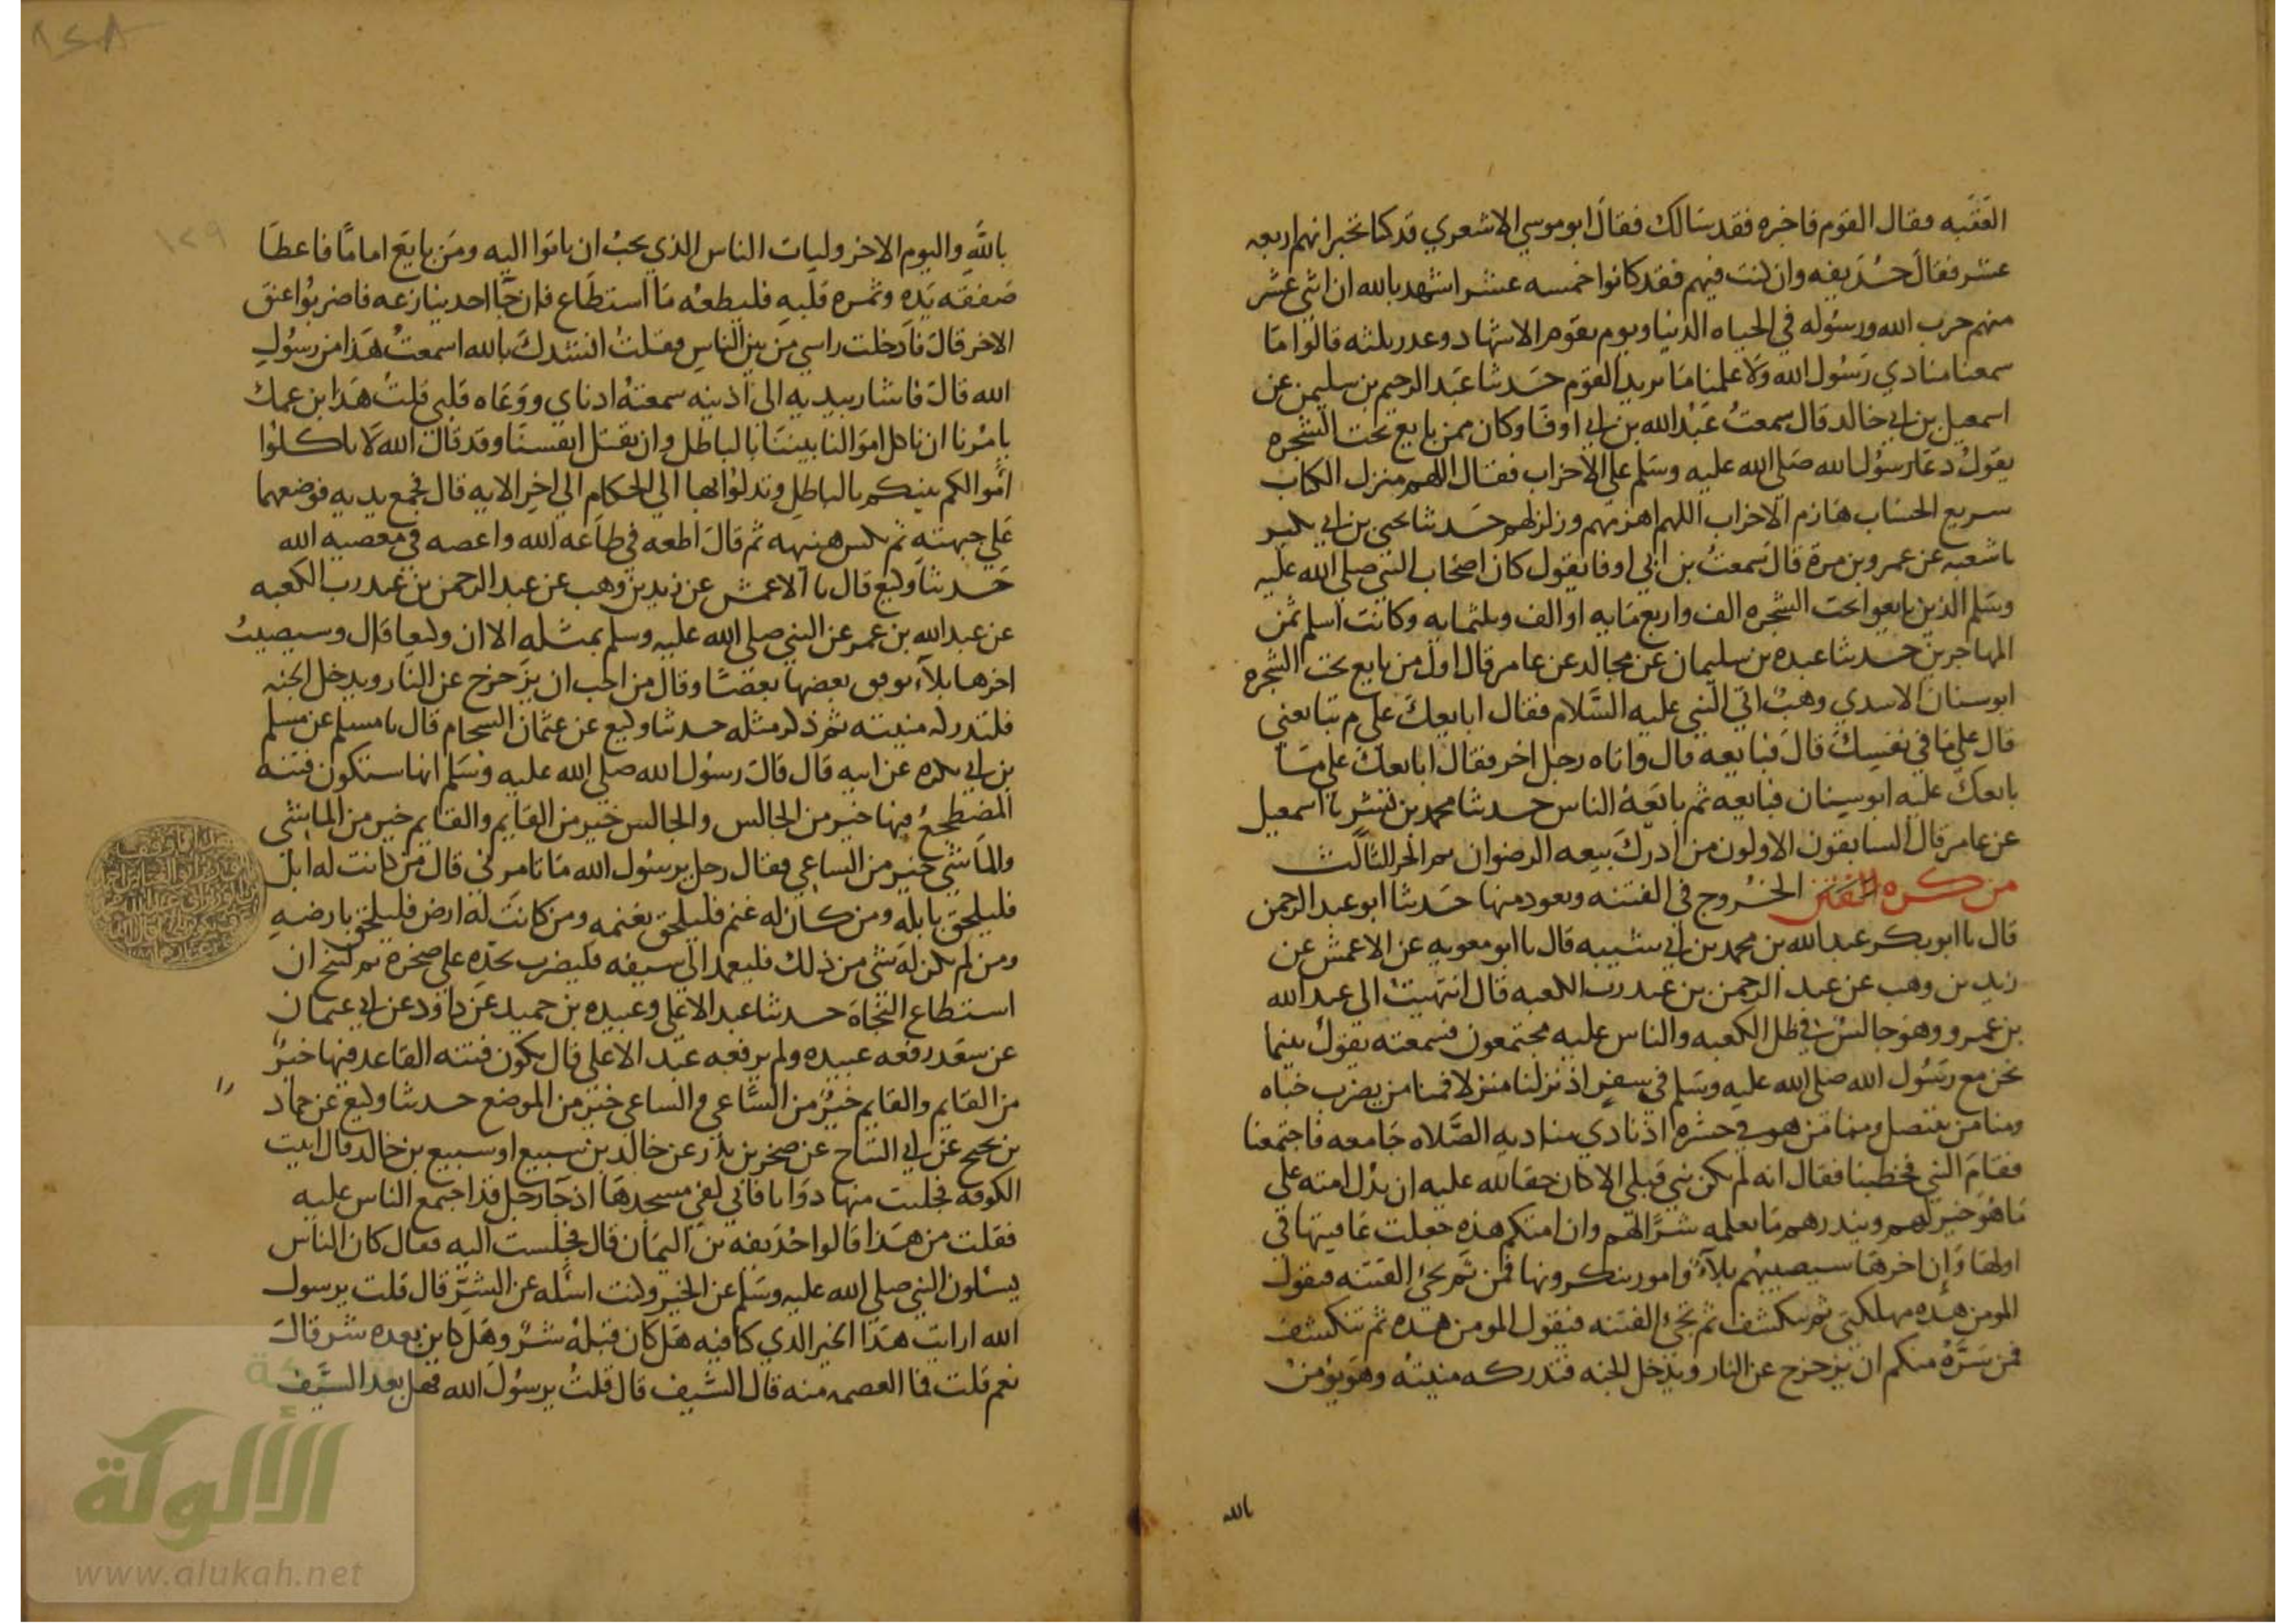 العقبه فقال القوم فاخبره فقد سالك فقال ابو موسي الاشعري قد كنا نخبر انهم اربعه
عشر فقال حذيفه وان كنت فيهم فقد كانوا خمسه عشر اشهد بالله ان اثني عشر
منهم حرب الله ورسوله في الحياه الدنيا ويوم يقوم الاشهاد وعدر ثلثه قالوا ما
سمعنا منادي رسول الله ولا علمنا ما يريد القوم حدثنا عبد الرحيم بن سليمن عن
اسمعيل بن ابي خالد قال سمعت عبد الله بن ابي اوفا وكان ممن بايع تحت الشجره
يقول دعا رسول الله صلى الله عليه وسلم علي الاحزاب فقال اللهم منزل الكتاب
سريع الحساب هازم الاحزاب اللهم اهزمهم وزلزلهم حدثنا يحيى بن ابي بكير
نا شعبه عن عمرو بن مرة قال سمعت بن ابي اوفا يقول كان اصحاب النبي صلى الله عليه
وسلم الذين بايعوا تحت الشجره الف واربع مايه او الف وثلثمايه وكانت اسلم ثمن
المهاجرين حدثنا عبده بن سليمان عن مجالد عن عامر قال اول من بايع تحت الشجره
ابو سنان الاسدي وهب اتي النبي عليه السلام فقال ابايعك علي م تبايعني
قال علي ما في نفسك قال فبايعه قال واتاه رجل اخر فقال ابايعك علي ما
بايعك عليه ابو سنان فبايعه ثم بايعه الناس حدثنا محمد بن بشر نا اسمعيل
عن عامر قال السابقون الاولون من ادرك بيعه الرضوان الثالث
من كره الفتن الخروج في الفتنه وتعوذ منها حدثنا ابو عبد الرحمن
قال نا ابو بكر عبد الله بن محمد بن ابي شيبه قال نا ابو معويه عن الاعمش عن
زيد بن وهب عن عبد الرحمن بن عبد رب الكعبه قال انتهيت الى عبد الله
بن عمرو وهو جالس في ظل الكعبه والناس عليه مجتمعون فسمعته يقول بينما
نحن مع رسول الله صلى الله عليه وسلم في سفر اذ نزلنا منزلا فمنا من يضرب خباه
ومنا من ينتصل ومنا من هو في جشره اذ نادي مناديه الصلاه جامعه فاجتمعنا
فقام النبي فخطبنا فقال انه لم يكن نبي قبلي الا كان حقا لله عليه ان يدل امته علي
ما هو خير لهم وينذرهم ما يعلمه شرا لهم وان امتكم هذه جعلت عافيتها في
اولها وإن اخرها سيصيبهم بلآء وامور ينكرونها فمن ثم تجئ الفتنه فيقول
المومن هذه مهلكتي ثم تنكشف ثم تجئ الفتنه فيقول المومن هذه ثم تنكشف
فمن سره منكم ان يزحزح عن النار ويدخل الجنه فتدركه منيته وهو يؤمن
بالله
١٢٩
بالله واليوم الاخر وليات الناس الذي يحب ان ياتوا اليه ومن بايع اماما فاعطا
صفقه يده وثمره قلبه فليطعه ما استطاع فان جا احد ينازعه فاضربوا عنق
الاخر قال فادخلت راسي من بين الناس فقلت انشدك بالله اسمعت هذا من رسول
الله قال فاشار بيديه الى اذنيه سمعته اذناي ووعاه قلبي قلت هذا ابن عمك
يامرنا ان ناكل اموالنا بيننا بالباطل وان نقتل انفسنا وقد قال الله لا تاكلوا
اموالكم بينكم بالباطل وتدلوا بها الي الحكام الي اخر الايه قال فجمع يديه فوضعهما
علي جبهته ثم نكس هنيهه ثم قال اطعه في طاعه الله واعصه في معصيه الله
حدثنا وكيع قال نا الاعمش عن زيد بن وهب عن عبد الرحمن بن عبد رب الكعبه
عن عبد الله بن عمر عن النبي صلى الله عليه وسلم بمثله الا ان وكيعا قال وسيصيب
اخرها بلآء يوفق بعضها بعضا وقال من احب ان يزحزح عن النار ويدخل الجنه
فلتدركه منيته ثم ذكر مثله حدثنا وكيع عن عثمان الشحام قال نا مسلم عن مسلم
بن ابي بكره عن ابيه قال قال رسول الله صلى الله عليه وسلم انها ستكون فتنه
المضطجع فيها خير من الجالس والجالس خير من القايم والقايم خير من الماشي
والماشي خير من الساعي فقال رجل يرسول الله ما تامرني قال من كانت له ابل
فليلحق بابله ومن كان له غنم فليلحق بغنمه ومن كانت له ارض فليلحق بارضه
ومن لم يكن له شي من ذلك فليعمد الي سيفه فليضرب بحده علي صخره ثم لينج ان
استطاع النجاة حدثنا عبد الاعلي وعبيده بن حميد عن داود عن ابي عثمان
عن سعد رفعه عبيده ولم يرفعه عبد الاعلي قال تكون فتنه القاعد فيها خير
من القايم والقايم خير من الساعي والساعي خير من الموضع حدثنا وكيع عن حماد
بن نجيح عن ابي التياح عن صخر بن بدر عن خالد بن سبيع او سبيع بن خالد قال اتيت
الكوفه فجلبت منها دوابا فاني لفي مسجدها اذ جا رجل قد اجتمع الناس عليه
فقلت من هذا قالوا حذيفه بن اليمان قال فجلست اليه فقال كان الناس
يسئلون النبي صلى الله عليه وسلم عن الخير وكنت اسئله عن الشر قال قلت يرسول
الله ارايت هذا الخير الذي كنا فيه هل كان قبله شر وهل كاين بعده شر قال
نعم قلت فما العصمه منه قال السيف قال قلت يرسول الله فهل بعد السيف
الألوكة
www.alukah.net